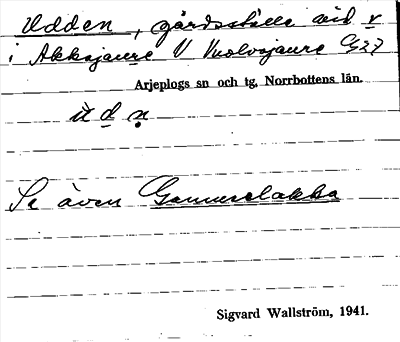 Udden, gårdsställe vid v
i Akkajaure V Vuolvojaure G37
Arjeplogs sn och tg, Norrbottens län.
u d n
Se även Gammelakka
Sigvard Wallström, 1941.